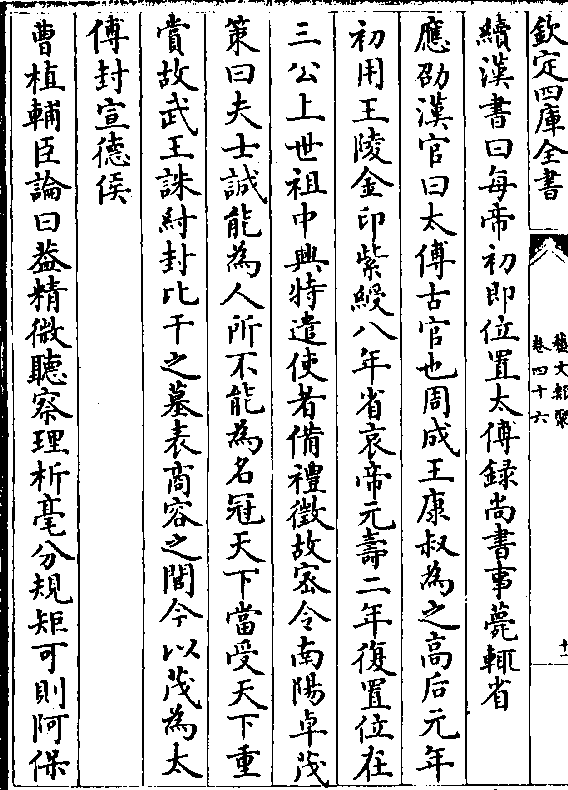 欽定四庫全書
藝文類聚
卷四十六
十二
續漢書曰每帝初即位置太傅録尚書事薨輒省
應劭漢官曰太傅古官也周成王康叔為之高后元年
初用王陵金印紫綬八年省哀帝元壽二年復置位在
三公上世祖中興特遣使者備禮徵故密令南陽卓茂
策曰夫士誠能為人所不能為名冠天下當受天下重
賞故武王誅紂封比干之墓表商容之閭今以茂為太
傅封宣德侯
曹植輔臣論曰葢精微聽察理析毫分規矩可則阿保